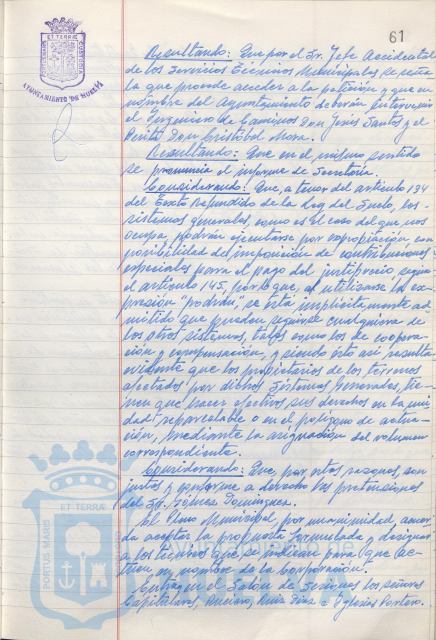 61
AYUNTAMIENTO DE HUELVA
Resultando: Que por el Sr. Jefe Accidental
de los Servicios Técnicos Municipales se seña
la que procede acceder a la petición y que en
nombre del Ayuntamiento deberán intervenir
el Ingeniero de Caminos Don Jesús Santos y el
Perito Don Cristóbal Mora.
Resultando: Que en el mismo sentido
se pronuncia el informe de Secretaría.
Considerando: Que, a tenor del artículo 134
del Texto Refundido de la Ley del Suelo, los
sistemas generales, como es el caso del que nos
ocupa, podrán ejecutarse por expropiación con
posibilidad del imposición de contribuciones
especiales para el pago del justiprecio según
el artículo 145, por que, al utilizarse la ex-
presión "podrán", se está implícitamente ad-
mitido que pueden seguirse cualquiera de
los otros sistemas, tales como los de coopera-
ción y compensación, y siendo ésto así resulta
evidente que los propietarios de los terrenos
afectados por dichos Sistemas Generales, tie-
nen que hacer efectivos sus derechos en la uni
dad reparcelable o en el polígono de actua-
ción, mediante la asignación del volumen
correspondiente.
Considerando: Que, por estas razones, son
justas y conforme a derecho las pretensiones
del Sr. Domínguez.
El Pleno Municipal, por unanimidad, acuer
da aceptar la propuesta formulada y designar
a los técnicos que se indican para que ac-
túen en nombre de la Corporación.
Entran en el Salón de Sesiones los señores
Capitulares, Ruiz e Iglesias
ET TERRÆ
PORTUS MARIS